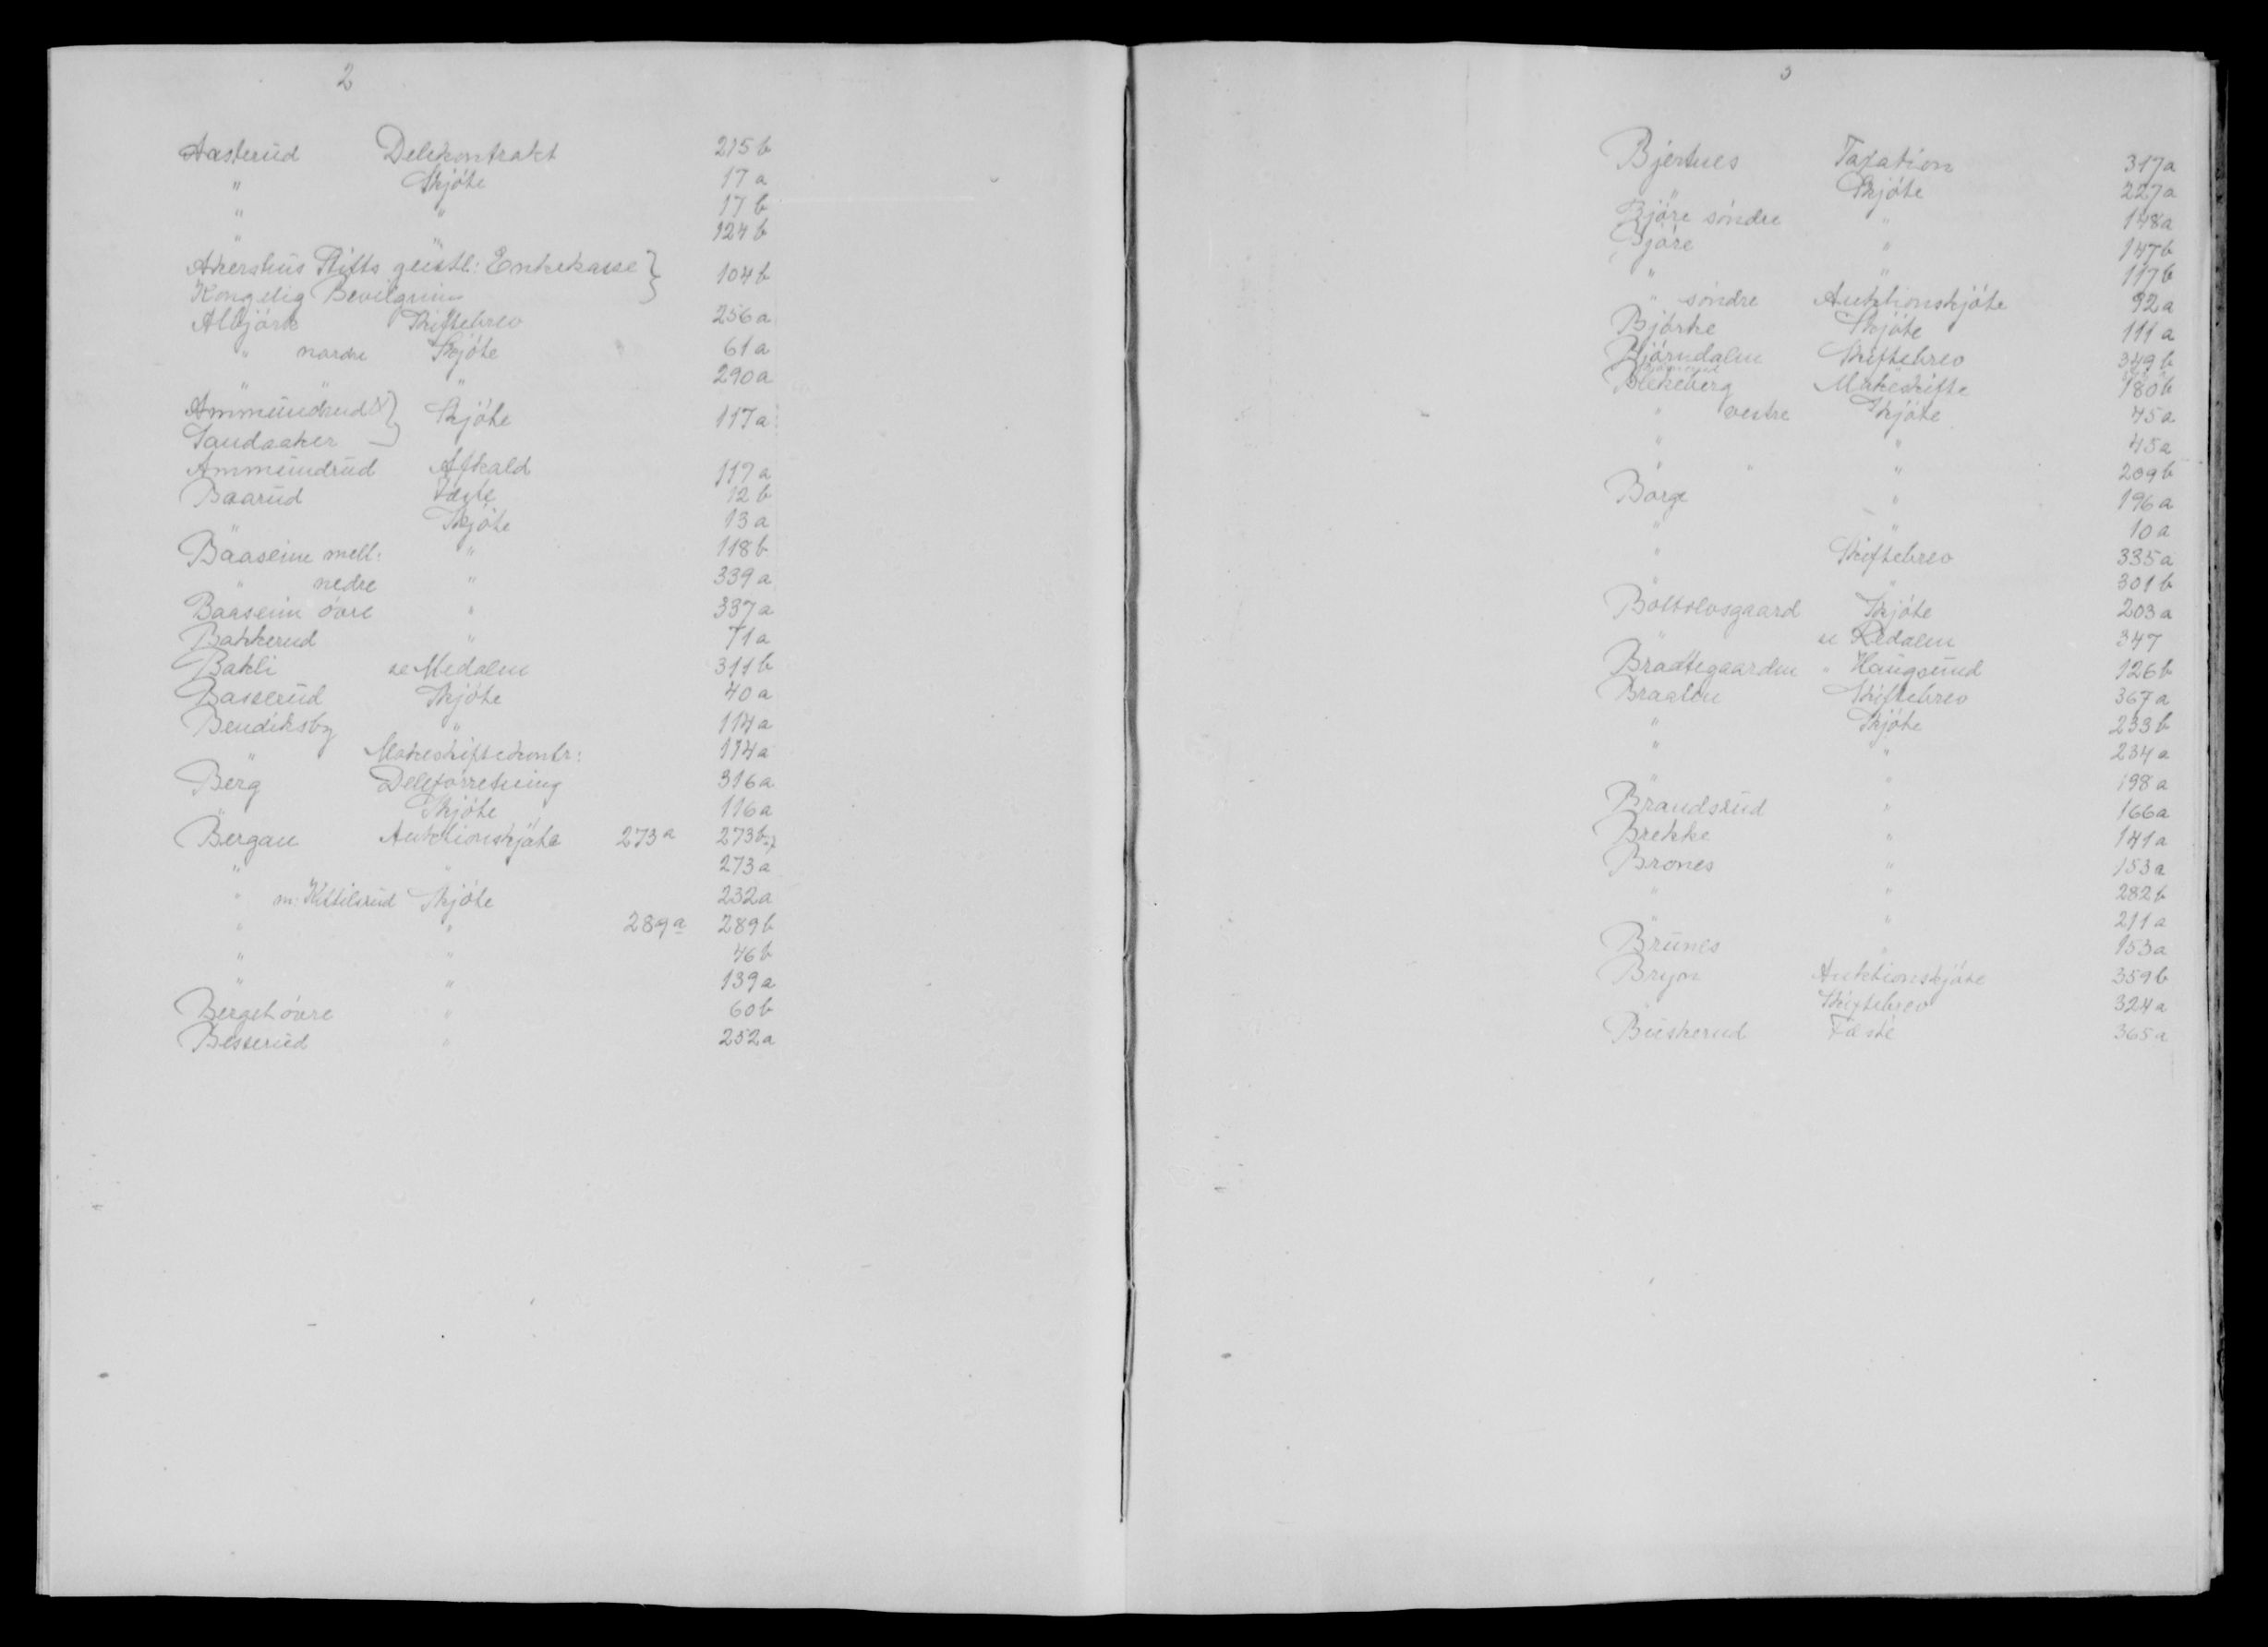 2
Aasterud Delekontrakt 215 b
" Skjöte 17 a
" " 17 b
" " 124 b
Akershus Stifts geistl: Enkekasse } 104 b
Kongelig Bevilgning
Albjörk Skiftebrev 256 a
" nordre Skjöte 61 a
" " " 290 a
Ammundrud & } Skjöte 117 a
Sandaaker
Ammundrud Afkald 117 a
Baarud Fæste 12 b
" Skjöte 13 a
Baaseim mell: " 118 b
" nedre " 339 a
Baaseim övre " 337 a
Bakkerud " 71 a
Bakli se Medalen 311 b
Basserud Skjöte 40 a
Bendiksby " 114 a
" Makeskiftekontr: 114 a
Berg Deleforretning 316 a
" Skjöte 116 a
Bergan Auktionskjöte 273 a 273 b
" " 273 a
" m: Kittilsrud Skjöte 232 a
" " 289 a 289 b
" " 46 b
" " 139 a
Berget övre " 60 b
Besserud " 252 a
3
Bjertnes Taxation 317 a
" Skjöte 227 a
Björe söndre " 148 a
Björe " 147 b
" " 117 b
" söndre Auktionskjöte 92 a
Bjórke Skjöte 111 a
Bjórndalen Skiftebrev 349 b
Blekeberg Makeskifte 180 b
" vestre Skjöte 45 a
" " 45 a
" " " 209 b
Borge " 196 a
" " 10 a
" Skiftebrev 335 a
" " 301 b
Bottolvsgaard Skjöte 203 a
" se Redalen 347
Braategaarden " Haugsund 126 b
Braaten Skiftebrev 367 a
" Skjöte 233 b
" " 234 a
" " 198 a
Brandsrud " 166 a
Brekke " 141 a
Brones " 153 a
" " 282 b
" " 211 a
Brunes " 153 a
Bryn Auktionskjöte 359 b
" Skiftebrev 324 a
Buskerud Fæste 365 a